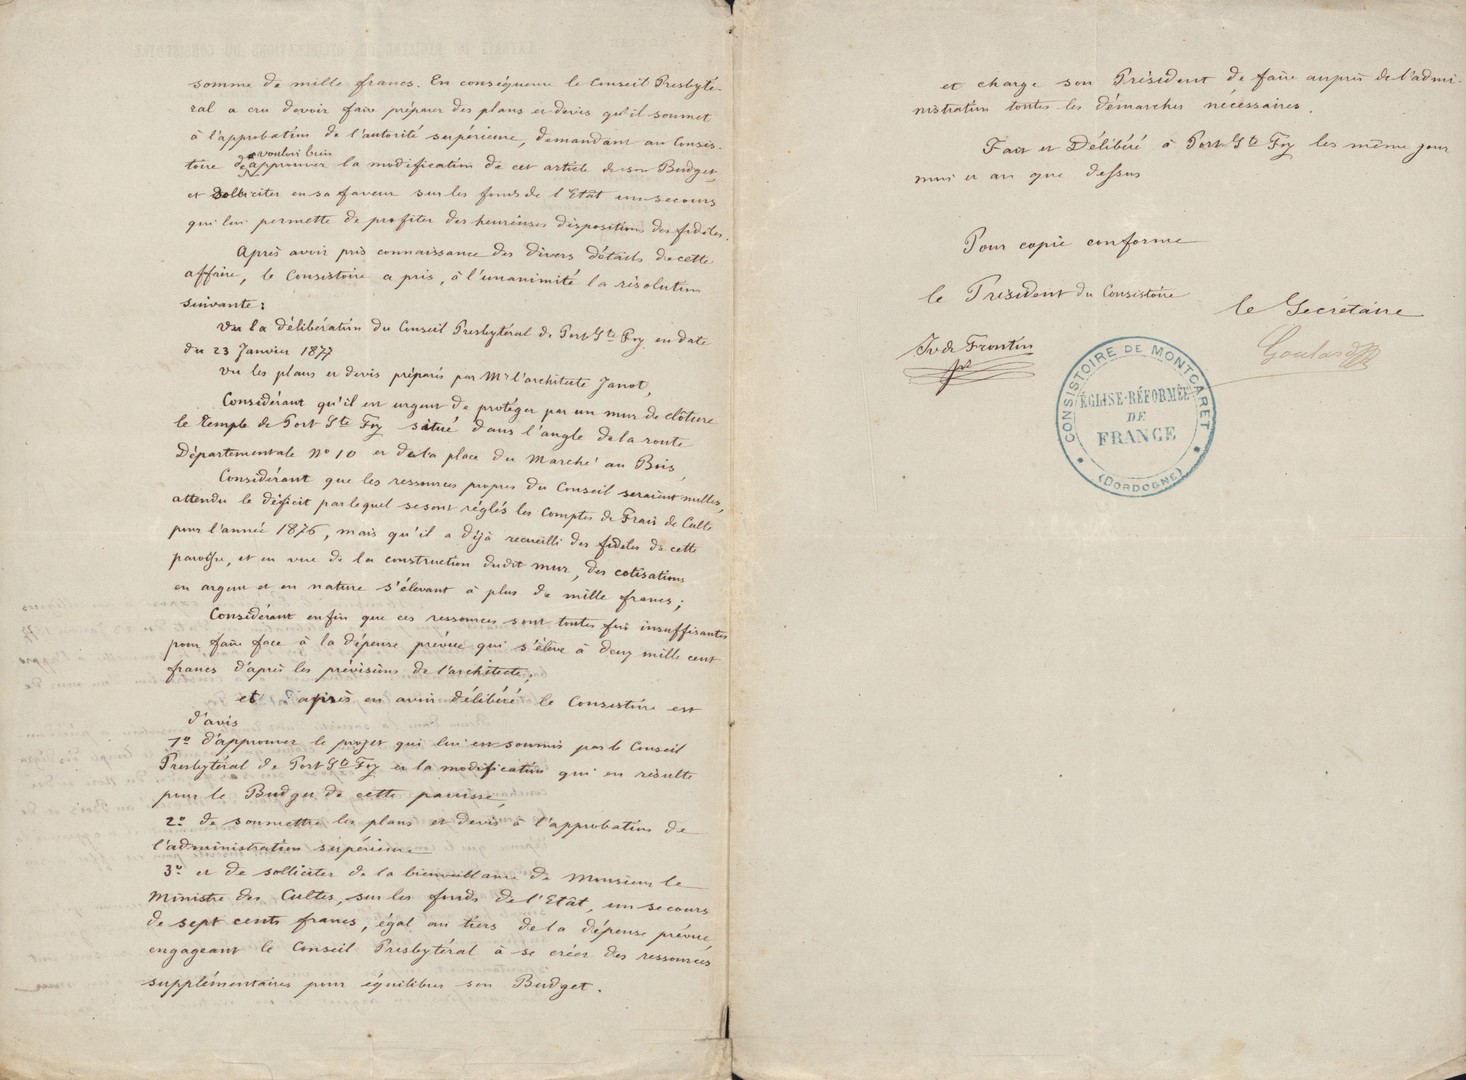 somme de mille francs. En conséquence le Conseil Presbyté-
ral a cru devoir faire préparer des plans et devis qu'il soumet
à l'approbation de l'autorité supérieure, demandant au Consis-
toire de vouloir bien approuver la modification de cet article de son Budget,
et solliciter en sa faveur sur les fonds de l'Etât un secours
qui lui permette de profiter des heureuses dispositions des fidèles.
Après avoir pris connaissance des divers détails de cette
affaire, le Consistoire a pris, à l'unanimité la résolution
suivante:
Vu la délibération du Conseil Presbytéral de Port Ste Foy en date
du 23 Janvier 1877
Vu les plans et devis préparés par Mr l'architecte Janot,
Considérant qu'il est urgent de protéger par un mur de clôture
le temple de Port Ste Foy situé dans l'angle de la route
Départementale No 10 et de la place du Marché au Bois,
Considérant que les ressources propres du Conseil seraient nulles,
attendu le déficit par lequel se sont réglés les Comptes de Frais de Culte
pour l'année 1876, mais qu'il a déjà recueilli des fidèles de cette
paroisse, et en vue de la construction dudit mur, des cotisations
en argent et en nature s'élevant à plus de mille francs;
Considérant enfin que ces ressources sont toutes fois insuffisantes
pour faire face à la dépense prévue qui s'élève à deux mille cent
francs d'après les prévisions de l'architecte;
et d'après en avoir délibéré le Consistoire est
d'avis
1o d'approuver le projet qui lui est soumis par le Conseil
Presbytéral de Port Ste Foy et la modification qui en résulte
pour le Budget de cette paroisse,
2o de soumettre les plans et devis à l'approbation de
l'administration supérieure
3o et de solliciter de la bienveillance de Monsieur le
Ministre des Cultes, sur les fonds de l'Etât, un secours
de sept cents francs, égal au tiers de la dépense prévue,
engageant le Conseil Presbytéral à se créer des ressources
supplémentaires pour équilibrer son Budget.
et charge son Président de faire auprès de l'admi-
nistration toutes les démarches nécessaires.
Fait et Délibéré à Port Ste Foy les même jour
mois et an que dessus
Pour copie conforme
le Président du Consistoire
le Secrétaire
Iv de Frontin
Goulard
CONSISTOIRE DE MONTCARET
ÉGLISE-RÉFORMÉE
DE
FRANCE
(DORDOGNE)